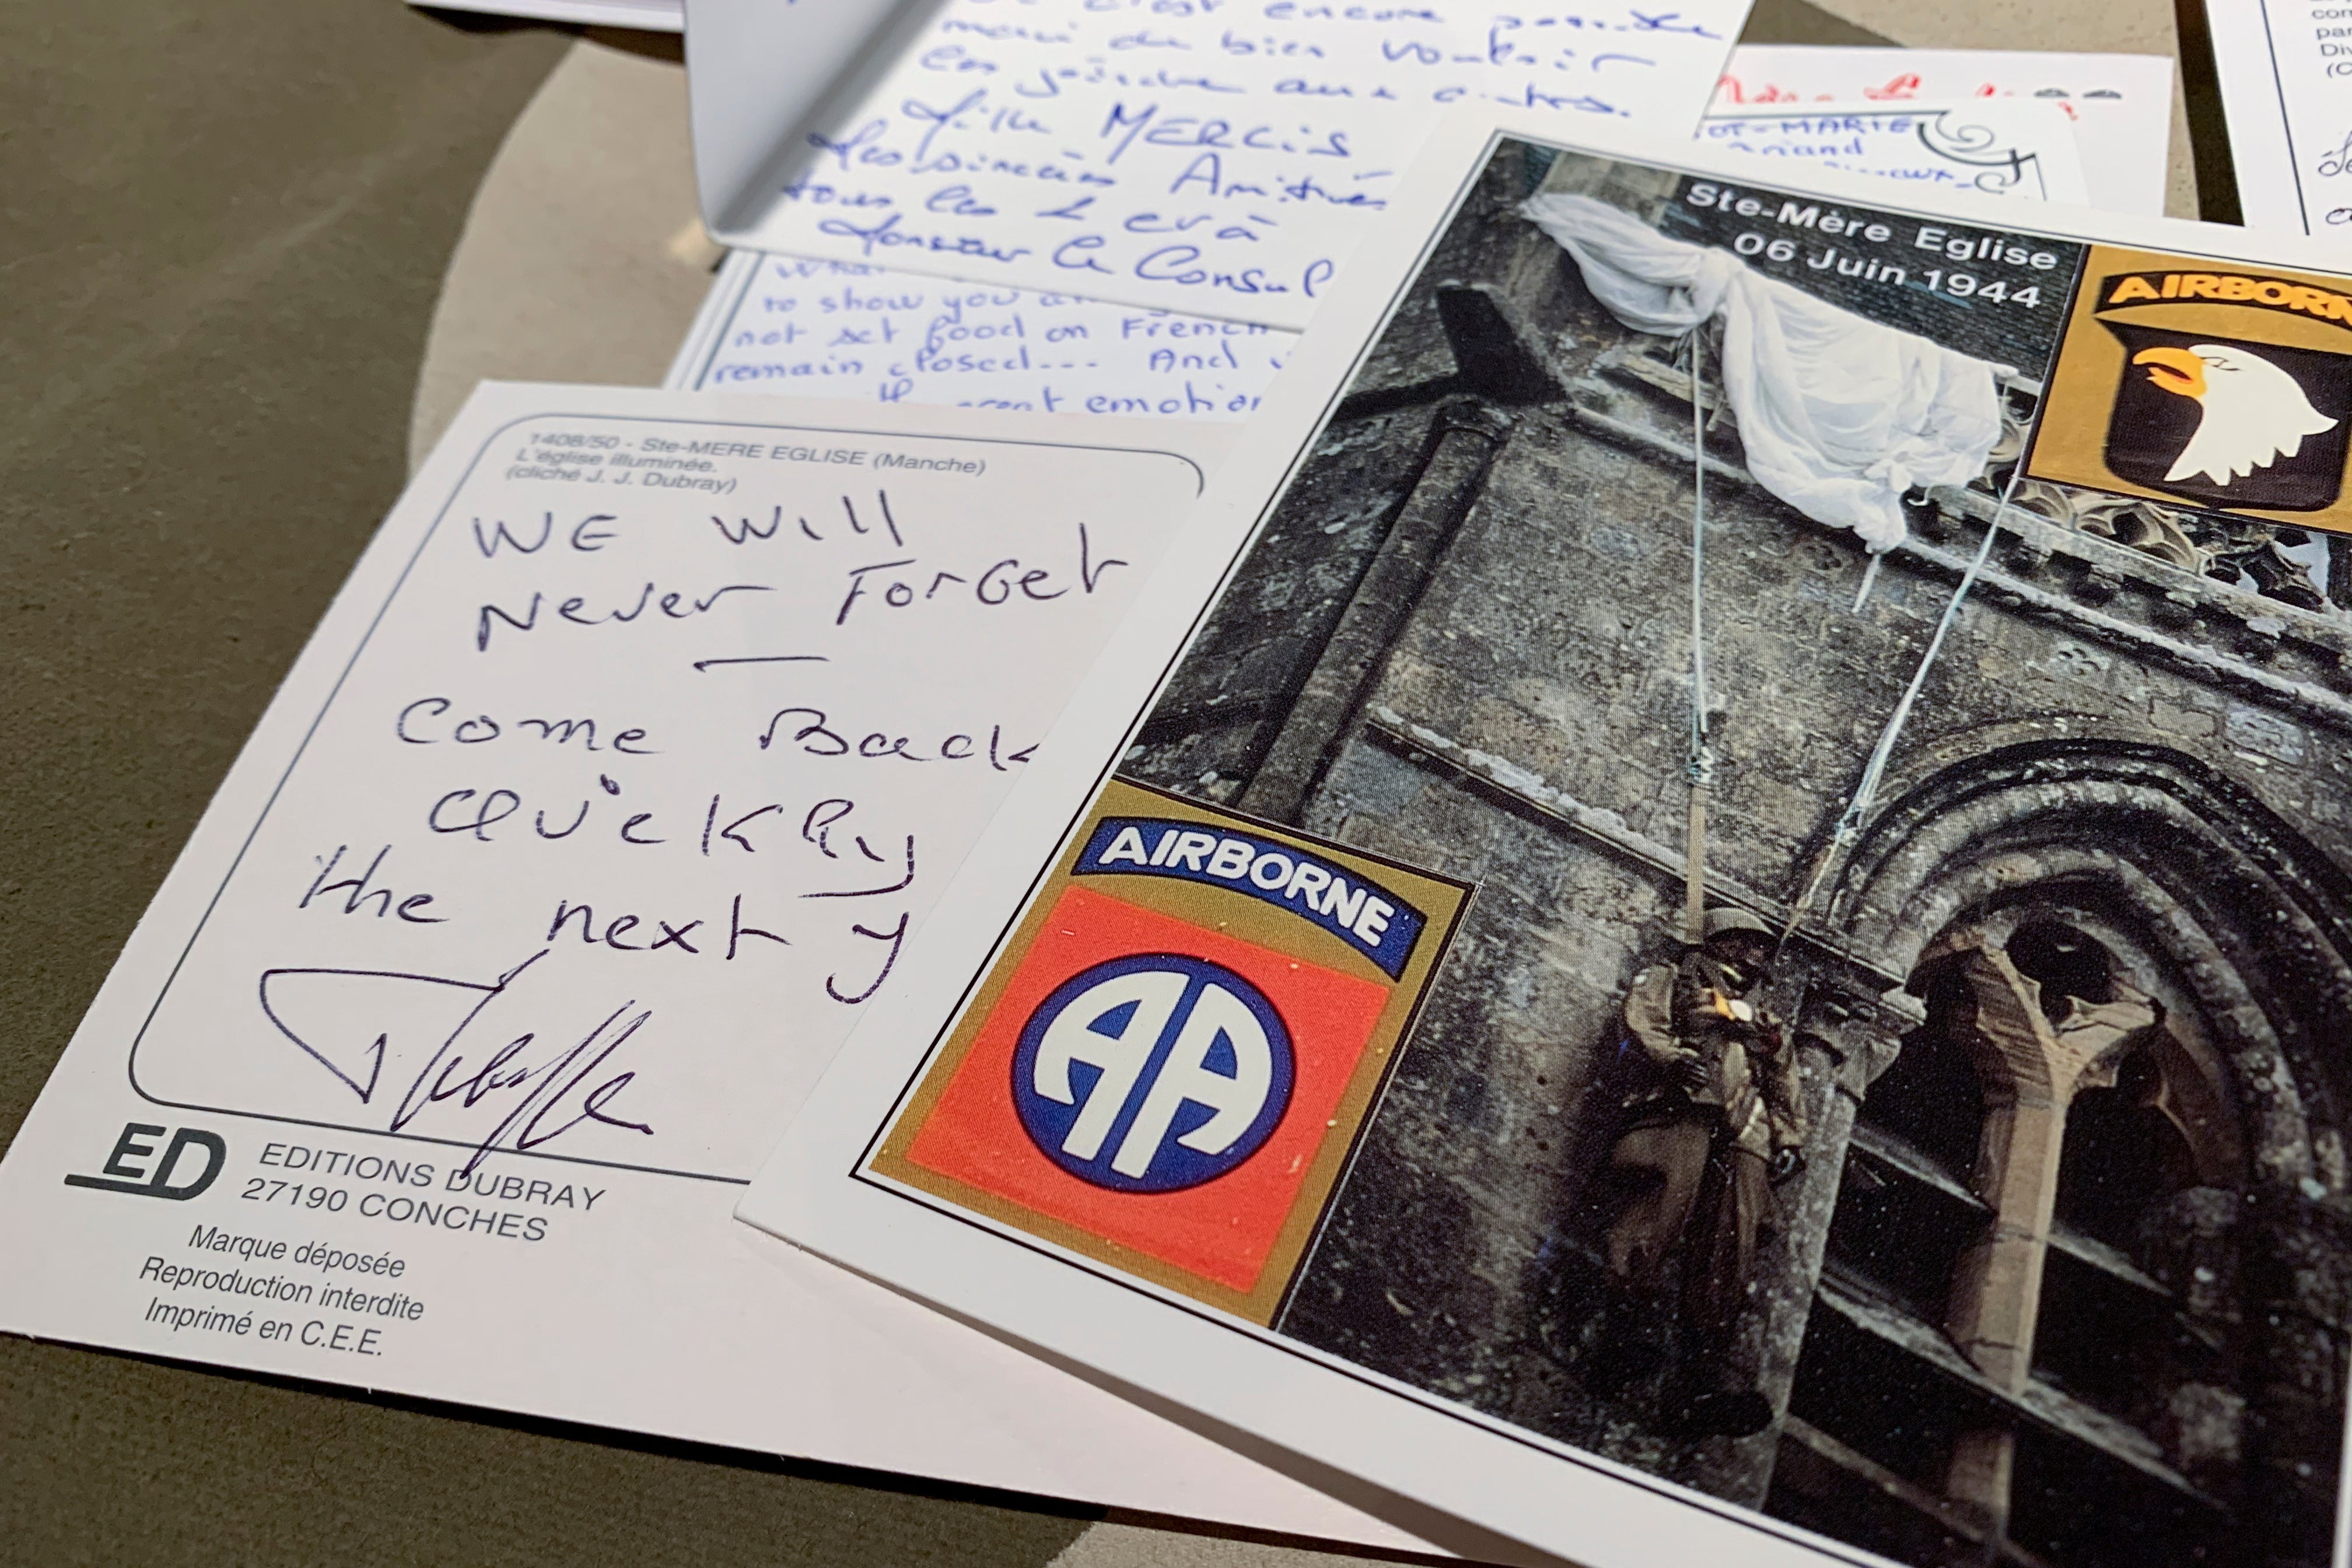 encore
de bien vouloir
Mille MERCIS
Amitiés
tous les 2 et à
Monsieur le Consul
to show you
not set food on French
remain closed... And
emotion
MARIE
1408/50 - Ste-MERE EGLISE (Manche)
L'église illuminée.
(cliché J. J. Dubray)
WE will
Never Forget
—
Come Back
Quickly
the next y
ED
EDITIONS DUBRAY
27190 CONCHES
Marque déposée
Reproduction interdite
Imprimé en C.E.E.
Ste-Mère Eglise
06 Juin 1944
AIRBORN
AIRBORNE
AA